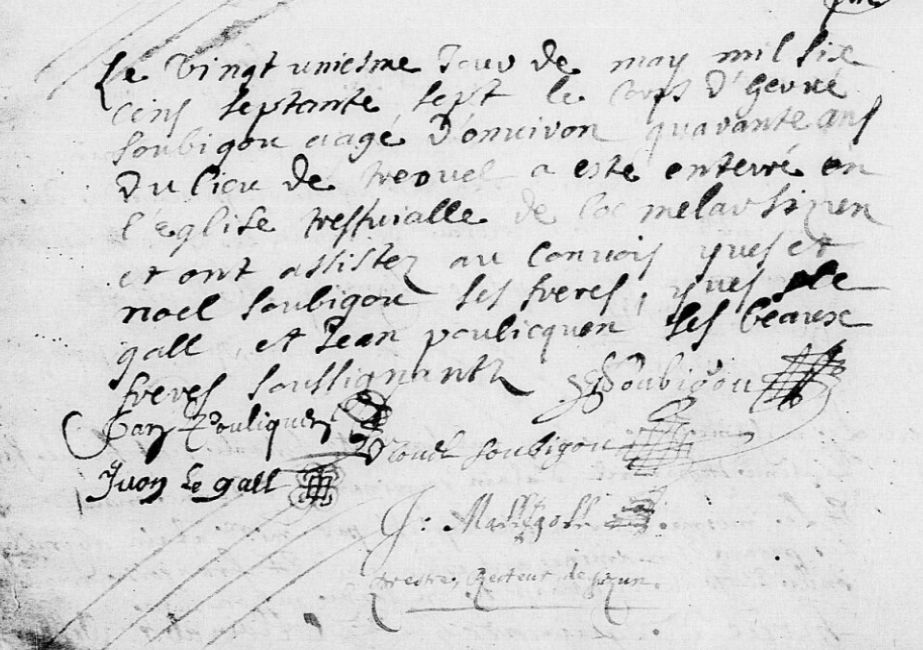 Le vingt uniesme Jour de may mil six
cens septante sept le corps d'hervé
soubigou aagé d'onviron quarante ans
du lieu de treouel a esté enterré en
l'eglise treffvialle de loc melar sizun
et ont assistez au convois yves et
noel soubigou ses freres, yves le
gall, et Jean poulicquen ses beaux
freres soussignantz YSoubigou
Jan Pouliquen
Nouel soubigou
Juon Le gall
J: Mallegoll
prestre, Recteur de sizun.